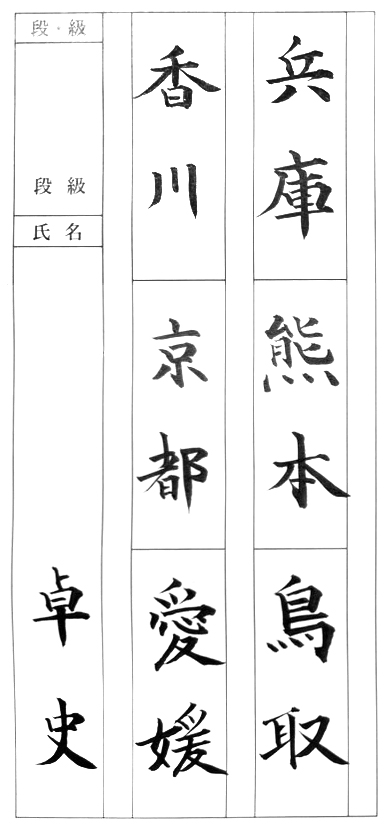 兵庫
熊本
鳥取
香川
京都
愛媛
段・級
段級
氏名
卓史